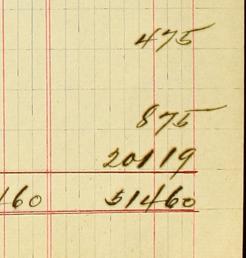 475
875
20119
460 51460